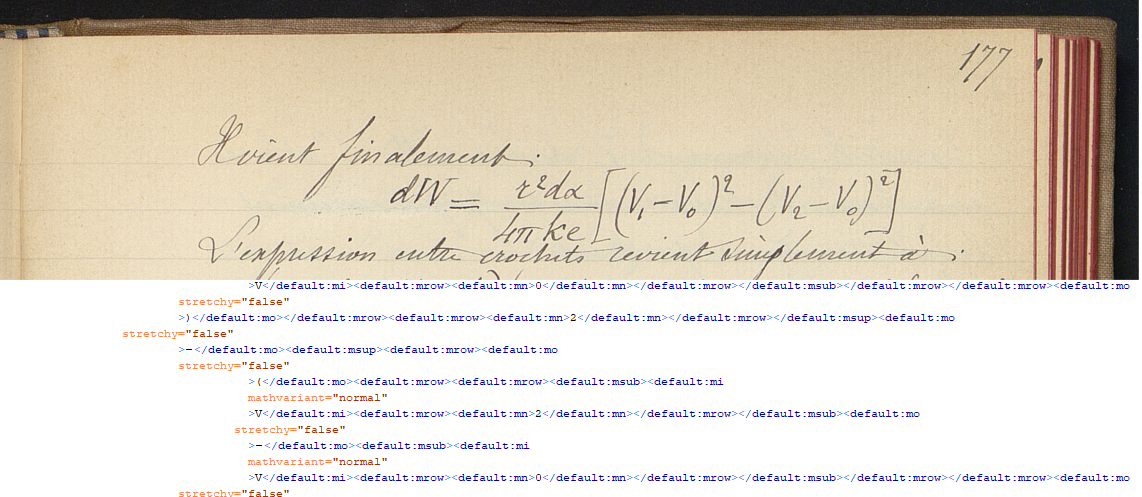 177
Il vient finalement:
dW = r²dα/4πke [(V₁ – V₀)² – (V₂ – V₀)²]
L'expression entre crochets revient simplement à:
>V</default:mi><default:mrow><default:mn>0</default:mn></default:mrow></default:msub></default:mrow></default:mrow><default:mo
stretchy="false"
>)</default:mo></default:mrow><default:mrow><default:mn>2</default:mn></default:mrow></default:msup><default:mo
stretchy="false"
>−</default:mo><default:msup><default:mrow><default:mo
stretchy="false"
>(</default:mo><default:mrow><default:mrow><default:msub><default:mi
mathvariant="normal"
>V</default:mi><default:mrow><default:mn>2</default:mn></default:mrow></default:msub><default:mo
stretchy="false"
>−</default:mo><default:msub><default:mi
mathvariant="normal"
>V</default:mi><default:mrow><default:mn>0</default:mn></default:mrow></default:msub></default:mrow></default:mrow><default:mo
stretchy="false"